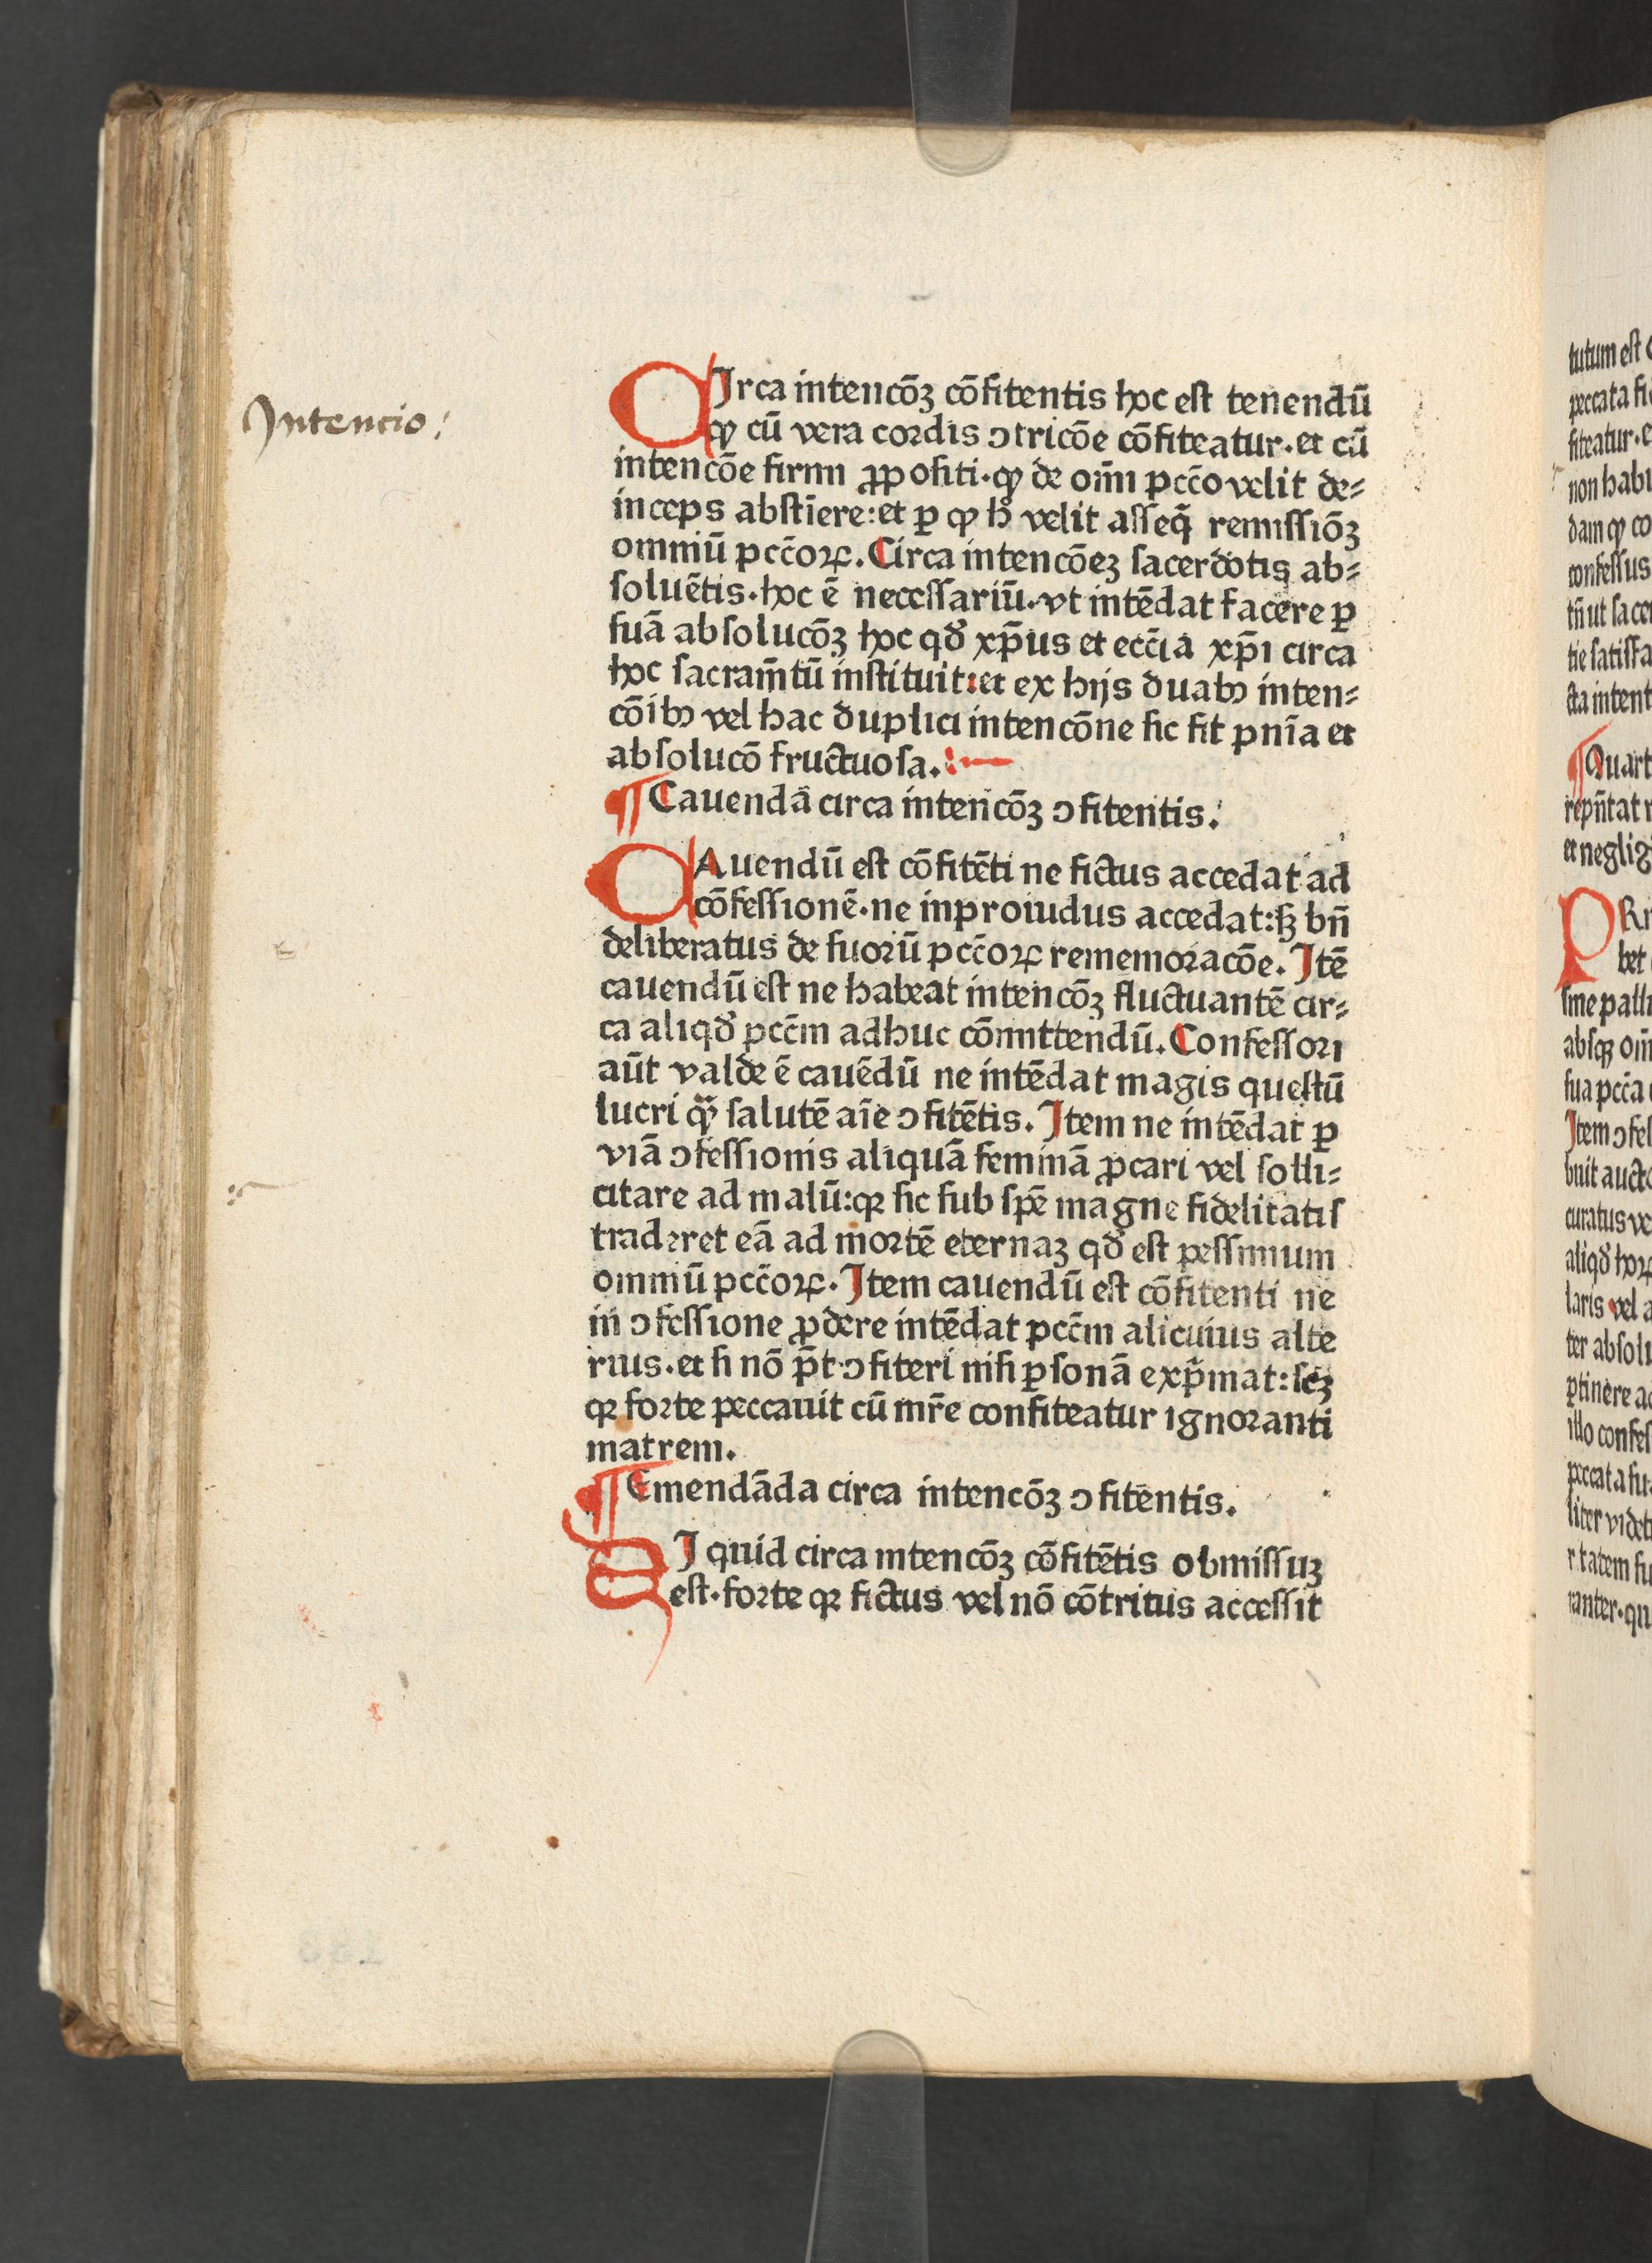 Intencio:
CIrca intencōꝫ cōfitentis hoc est tenendū
ꝙ cū vera cordis ↄtricōe cōfiteatur·et cū
intencōe firmi ꝓpositi·ꝙ de om̄i pcc̄o velit de⸗
inceps abstīere:et ꝑ ꝙ h̄ velit asseq̄ remissiōꝫ
omniū pcc̄oꝝ. Circa intencōeꝫ sacerdotis ab⸗
soluētis·hoc ē necessariū·vt intēdat facere ꝑ
suā absolucōꝫ hoc qđ xp̄us et ecc̄ia xp̄i circa
hoc sacram̄tū instituit:et ex hijs duabꝰ inten⸗
cōibꝰ vel hac duplici intencōne sic fit pnīa et
absolucō fructuosa.
¶ Cauendā circa intencōꝫ ↄfitentis.
CAuendū est cōfitēti ne fictus accedat ad
cōfessionē·ne inprouidus accedat:sꝫ bn̄
deliberatus de suorū pcc̄oꝝ rememoracōe. Itē
cauendū est ne habeat intencōꝫ fluctuantē cir⸗
ca aliqđ pcc̄m adhuc cōmittendū. Confessori
aūt valde ē cauēdū ne intēdat magis questū
lucri qͣꝫ salutē aīe ↄfitētis. Item ne intēdat ꝑ
viā ↄfessionis aliquā feminā ꝓcari vel solli⸗
citare ad malū:qꝛ sic sub spē magne fidelitatis
traderet eā ad mortē eternaꝫ qđ est pessimum
omniū pcc̄oꝝ. Item cauendū est cōfitenti ne
in ↄfessione ꝓdere intēdat pcc̄m alicuius alte
rius·et si nō p̄t ↄfiteri nisi ꝑsonā exp̄mat:scꝫ
qꝛ forte peccauit cū mr̄e confiteatur ignoranti
matrem.
¶ Emendāda circa intencōꝫ ↄfitentis.
SI quid circa intencōꝫ cōfitētis obmissuꝫ
est·forte qꝛ fictus vel nō cōtritus accessit
tutum est
peccata
fiteatur·
non
damꝙ
confessus
tn̄ ut
tie
cta
¶Quart
rep̄ntat
et
PRi
bet
sine
absqꝫ om̄
sua pcc̄a
Item
buit
curatus
aliqđ
laris vel
ter
ꝑtinere
illo
peccata
liter